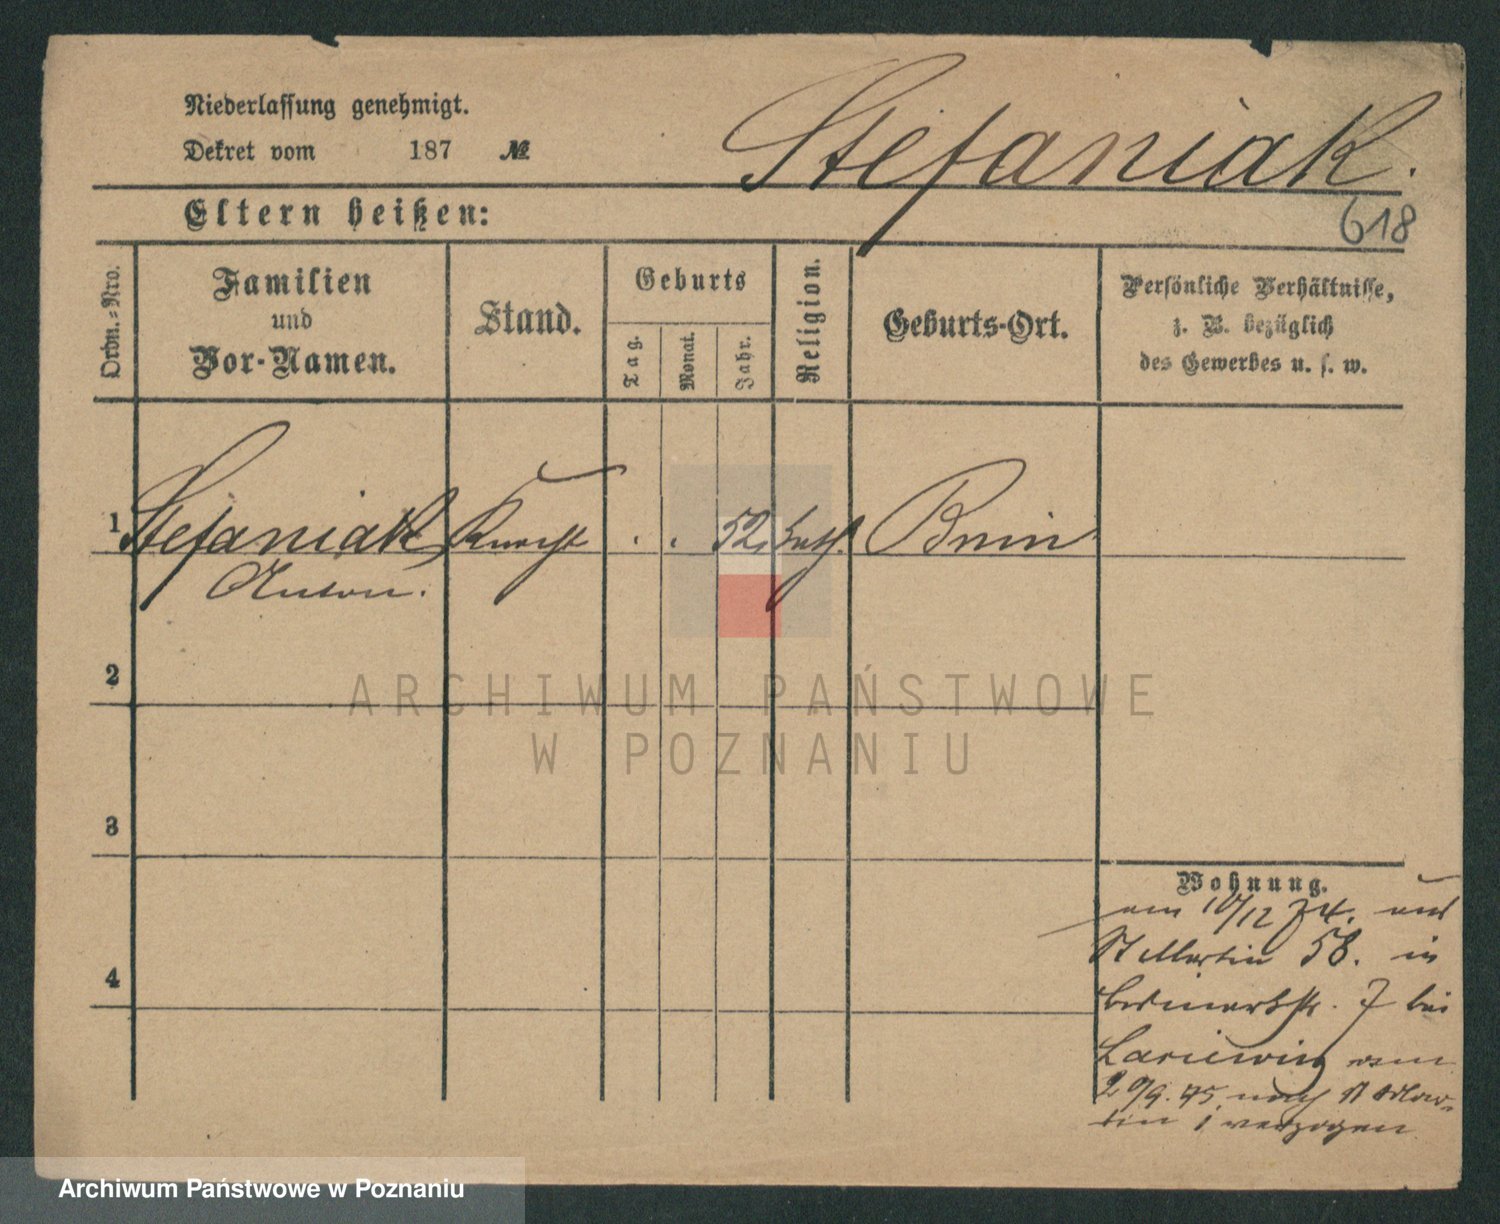 Niederlassung genehmigt.
Dekret vom 187 №
Stefaniak.
Eltern heißen:
618
Ordn.-Nro.
Familien
und
Vor-Namen.
Stand.
Geburts
Tag.
Monat.
Jahr.
Religion.
Geburts-Ort.
Persönliche Verhältnisse,
z. B. bezüglich
des Gewerbes u. s. w.
1 Stefaniak Knecht . . 52, kath. Bnin
Anton.
2
3
4
ARCHIWUM PAŃSTWOWE
W POZNANIU
Wohnung.
am 10/12 74. aus
St Martin 58. in
7 bei
vom
29/9. 75 nach St Mar-
tin 1 verzogen
Archiwum Państwowe w Poznaniu